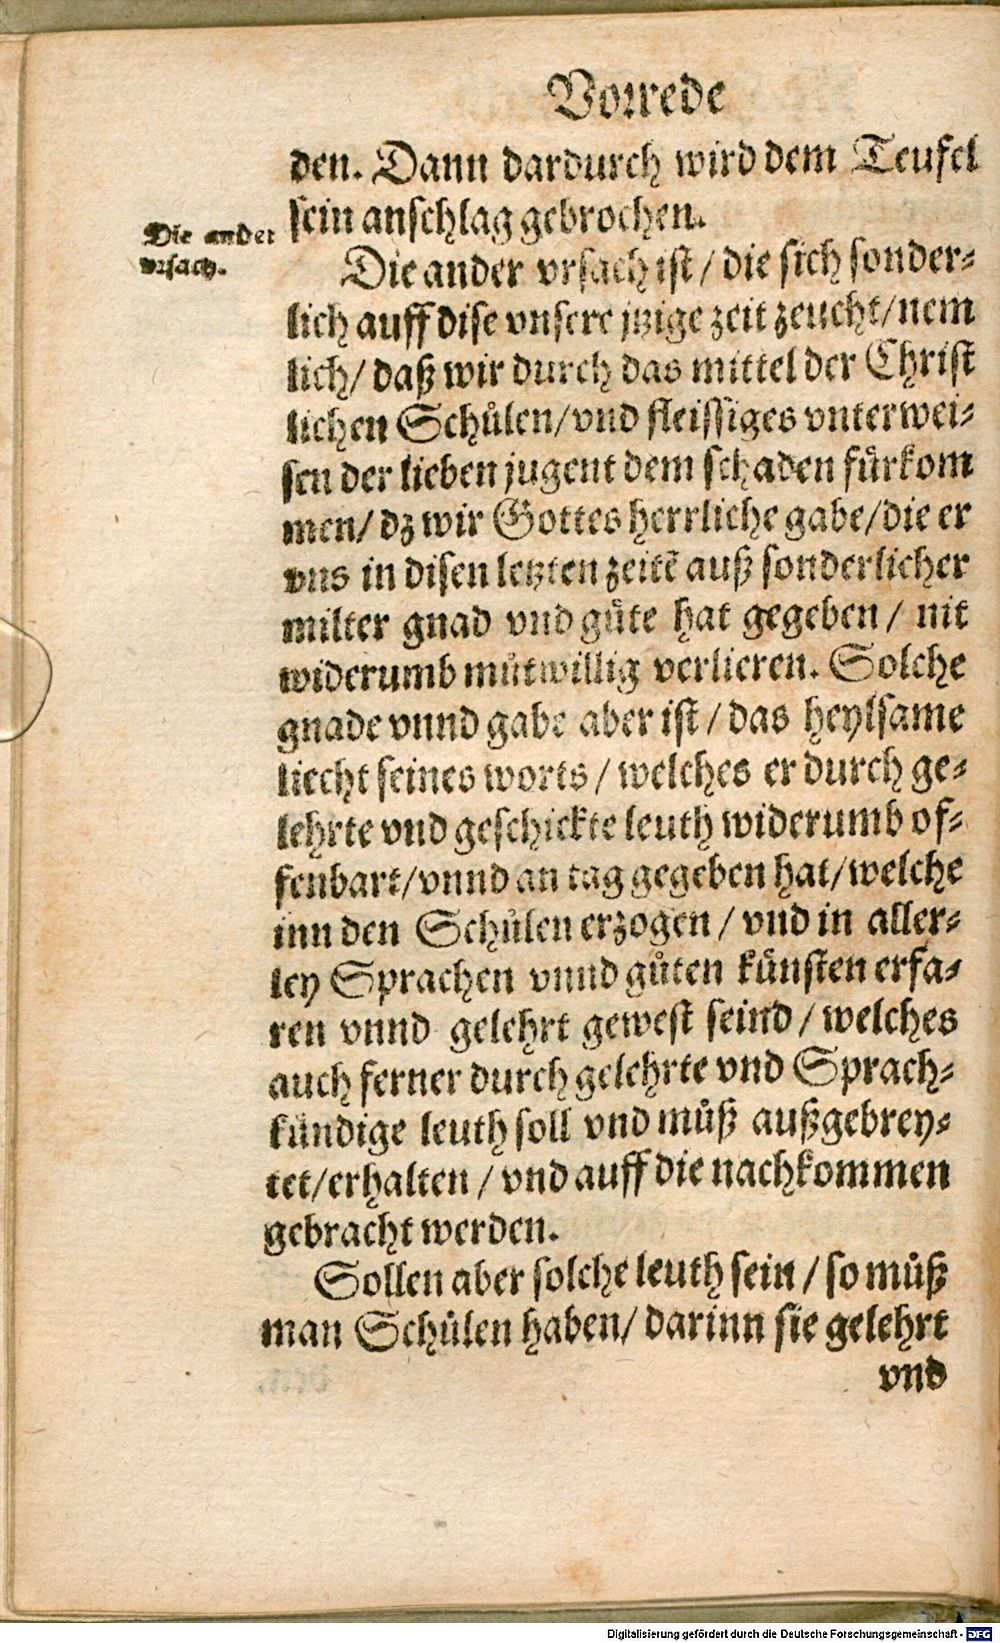 Vorrede
den. Dann dardurch wird dem Teufel
sein anschlag gebrochen.
Die ander
vrsach.
Die ander vrsach ist / die sich sonder-
lich auff dise vnsere jtzige zeit zeucht/nem
lich/ daß wir durch das mittel der Christ
lichen Schůlen/vnd fleissiges vnterwei-
sen der lieben jugent dem schaden fürkom
men/ dz wir Gottes herrliche gabe/die er
vns in disen letzten zeitẽ auß sonderlicher
milter gnad vnd güte hat gegeben / nit
widerumb můtwillig verlieren. Solche
gnade vnnd gabe aber ist / das heylsame
liecht seines worts / welches er durch ge-
lehrte vnd geschickte leuth widerumb of-
fenbart/vnnd an tag gegeben hat/welche
inn den Schůlen erzogen / vnd in aller-
ley Sprachen vnnd gůten künsten erfa-
ren vnnd gelehrt gewest seind / welches
auch ferner durch gelehrte vnd Sprach-
kündige leuth soll vnd můß außgebrey-
tet/erhalten / vnd auff die nachkommen
gebracht werden.
Sollen aber solche leuth sein / so můß
man Schůlen haben/ darinn sie gelehrt
vnd
Digitalisierung gefördert durch die Deutsche Forschungsgemeinschaft - DFG